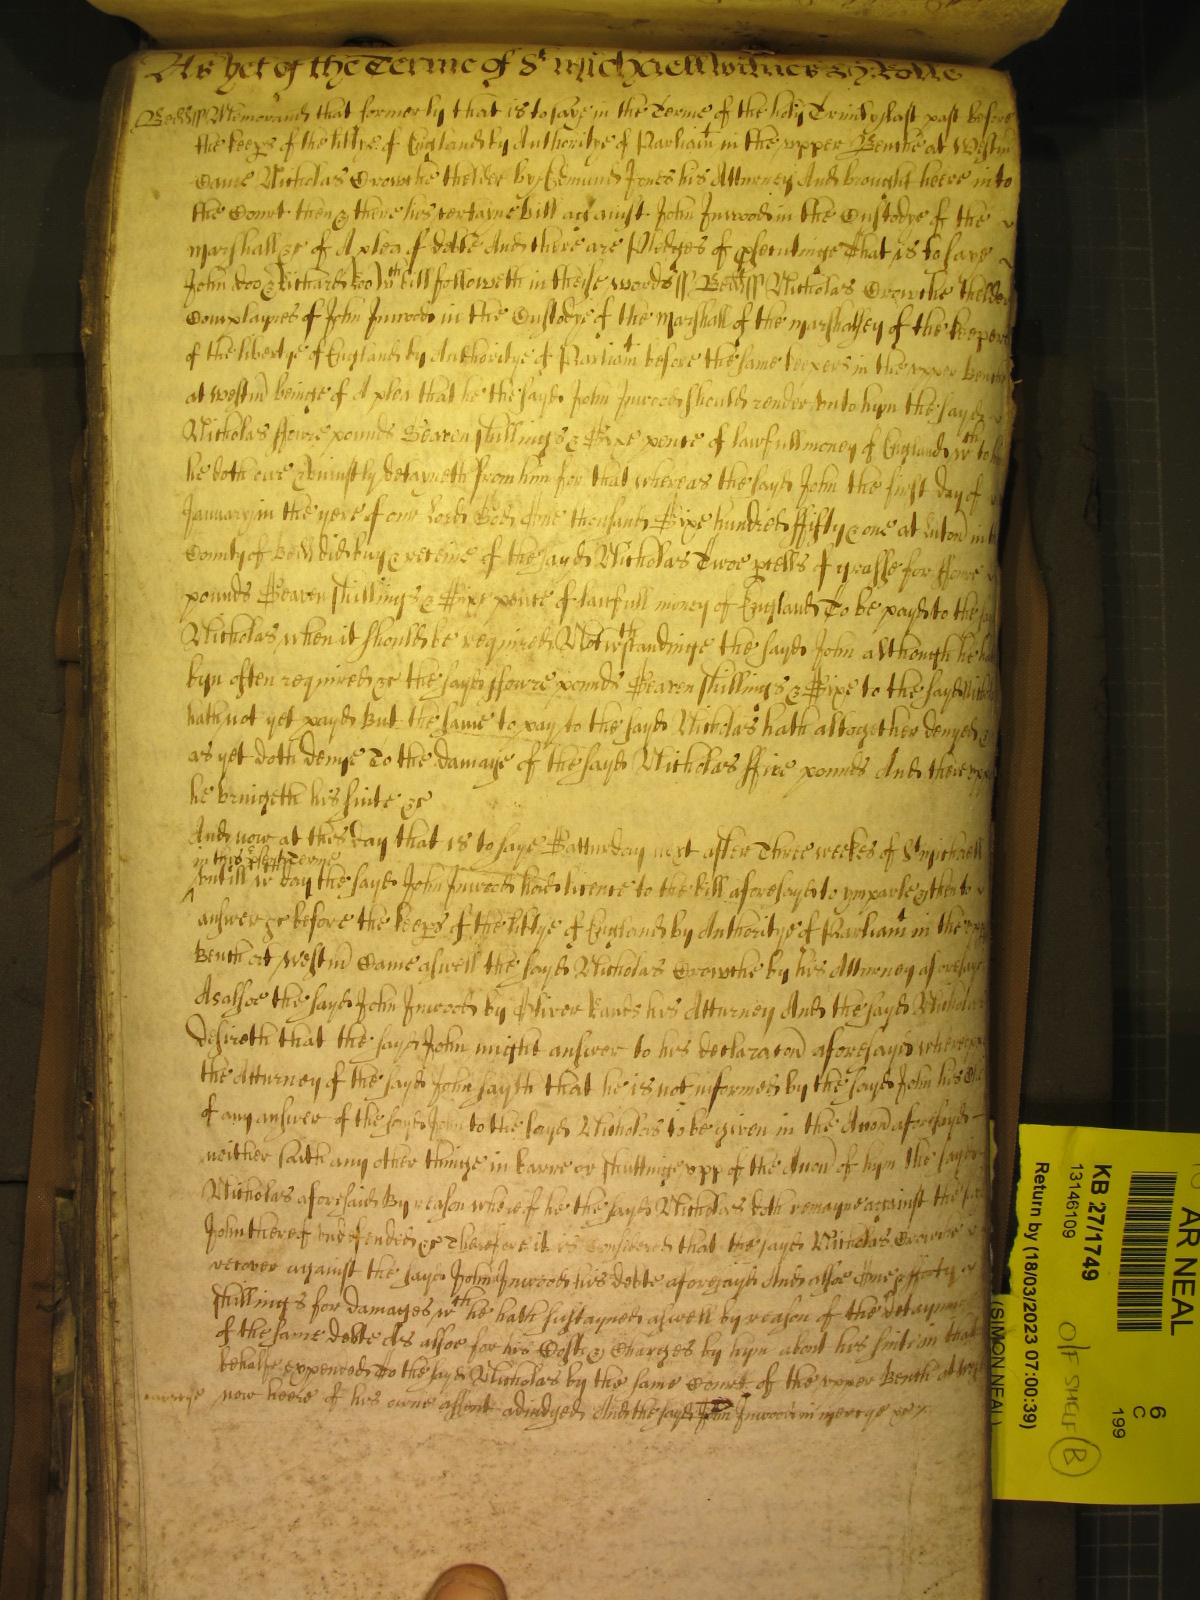 As yet of the Terme of St Michaell witnes H: Rolle
Bedd ss Memorand that formerly that is to saye in the Terme of the holy Trinity last past before
the keeps of the libtye of England by Authoritye of Parliamt in the upper Benche at Westm
Came Nicholas Crowche thelder by Edmund Jones his Atturney And brought heere into
the Court then & there his certaine bill against John Inwood in the Custodye of the
marshall &c of A plea of debte And there are Pledges of psecutinge That is to saye
John Doo & Richard Roo wch bill followeth in theise words ss Bedd ss Nicholas Crowche thelder
Complaynes of John Inwood in the Custodye of the marshall of the marshalsey of the keepers
of the libertye of England by Authoritye of Parliamt before the same keepers in the upper Benche
at Westm beinge of A plea that he the sayd John Inwood should render unto hym the sayd
Nicholas ffowre pounds Seaven shillings & Sixe pence of lawfull money of England wch to
he doth owe & uniustly detayneth from him for that whereas the sayd John the first day of
January in the yere of our Lord God One thousand Sixe hundred ffifty & one at Luton in
County of Bedd did buy & receive of the sayd Nicholas Twoe pcells of grasse for ffowre
pounds Seaven shillings & Sixe pence of lawfull money of England To be payd to the
Nicholas when it should be required Notwthstandinge the sayd John although he
byn often required &c the sayd ffowre pounds Seaven shillings & Sixe to the sayd
hath not yet payd But the same to pay to the sayd Nicholas hath altogether denyed &
as yet doth denye To the damage of the sayd Nicholas ffive pounds And thereupp
he bringeth his suite &c
And now at this day that is to saye Satturday next after Three weekes of St Michaell
in this psent Terme
untill wch day the sayd John Inwood had licence to the bill aforesayd to ymparle & then to
answer &c before the keeps of the libtye of England by Authoritye of Parliamt in the upp
Bench at Westm Came aswell the sayd Nicholas Crowche by his Atturney aforesayd
As alsoe the sayd John Inwood by Oliver his Atturney And the sayd Nicholas
desireth that the sayd John might answer to his declaracon aforesayd whereupp
the Atturney of the sayd John sayth that he is not informed by the sayd John his
of any answer of the sayd John to the sayd Nicholas to be given in the Accon aforesayd
neither saith any other thinge in barre or shuttinge upp of the Accon of hym the sayd
Nicholas aforesaid By reason whereof he the sayd Nicholas doth remayne against the
John thereof undefended &c Therefore it is Considered that the sayd Nicholas Crowche
recover against the sayd John Inwood his debte aforesayd And alsoe
shillings for damages wch he hath sustayned aswell by reason of the detayninge
of the same debte As alsoe for his Costs & Charges by hym about his suite in that
behalfe expended To the sayd Nicholas by the same Court of the upper Bench at
mercye now heere of his owne assent adiudged And the sayd John Inwood in mercye &c
AR NEAL
6
C
199
KB 271/749
13146109
Return by (18/03/2023 07:00:39)
(SIMON NEAL)
O/F SHELF
B